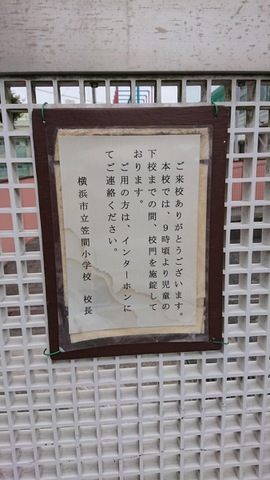 ご来校ありがとうございます。
本校では、9時頃より児童の
下校までの間、校門を施錠して
おります。
ご用の方は、インターホンに
てご連絡ください。
横浜市立笠間小学校 校長